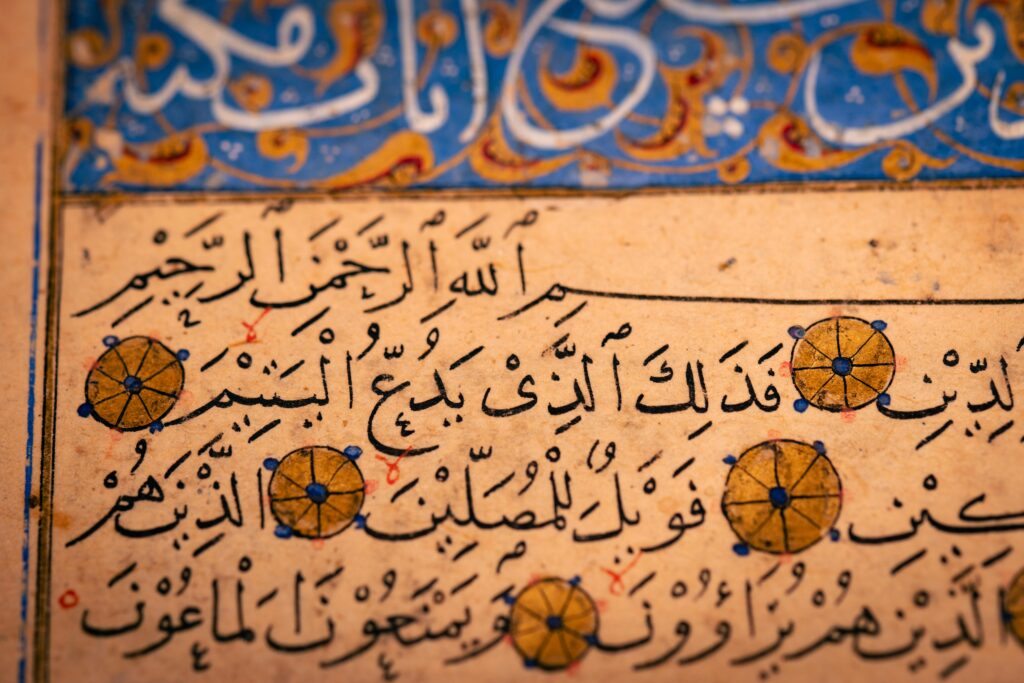 سبع ايات مكية
ـمِ ٱللَّهِ ٱلرَّحْمَنِ ٱلرَّحِيْمِ
لدِّيْنِ فَذَلِكَ ٱلَّذِيْ يَدُعُّ الْيَتِيْمَ
ـكِيْنِ فَوَيْلٌ لِلْمُصَلِّيْنَ الَّذِيْنَ هُمْ
الَّذِيْنَ هُمْ يُرَاؤُوْنَ وَيَمْنَعُوْنَ الْمَاعُوْنَ